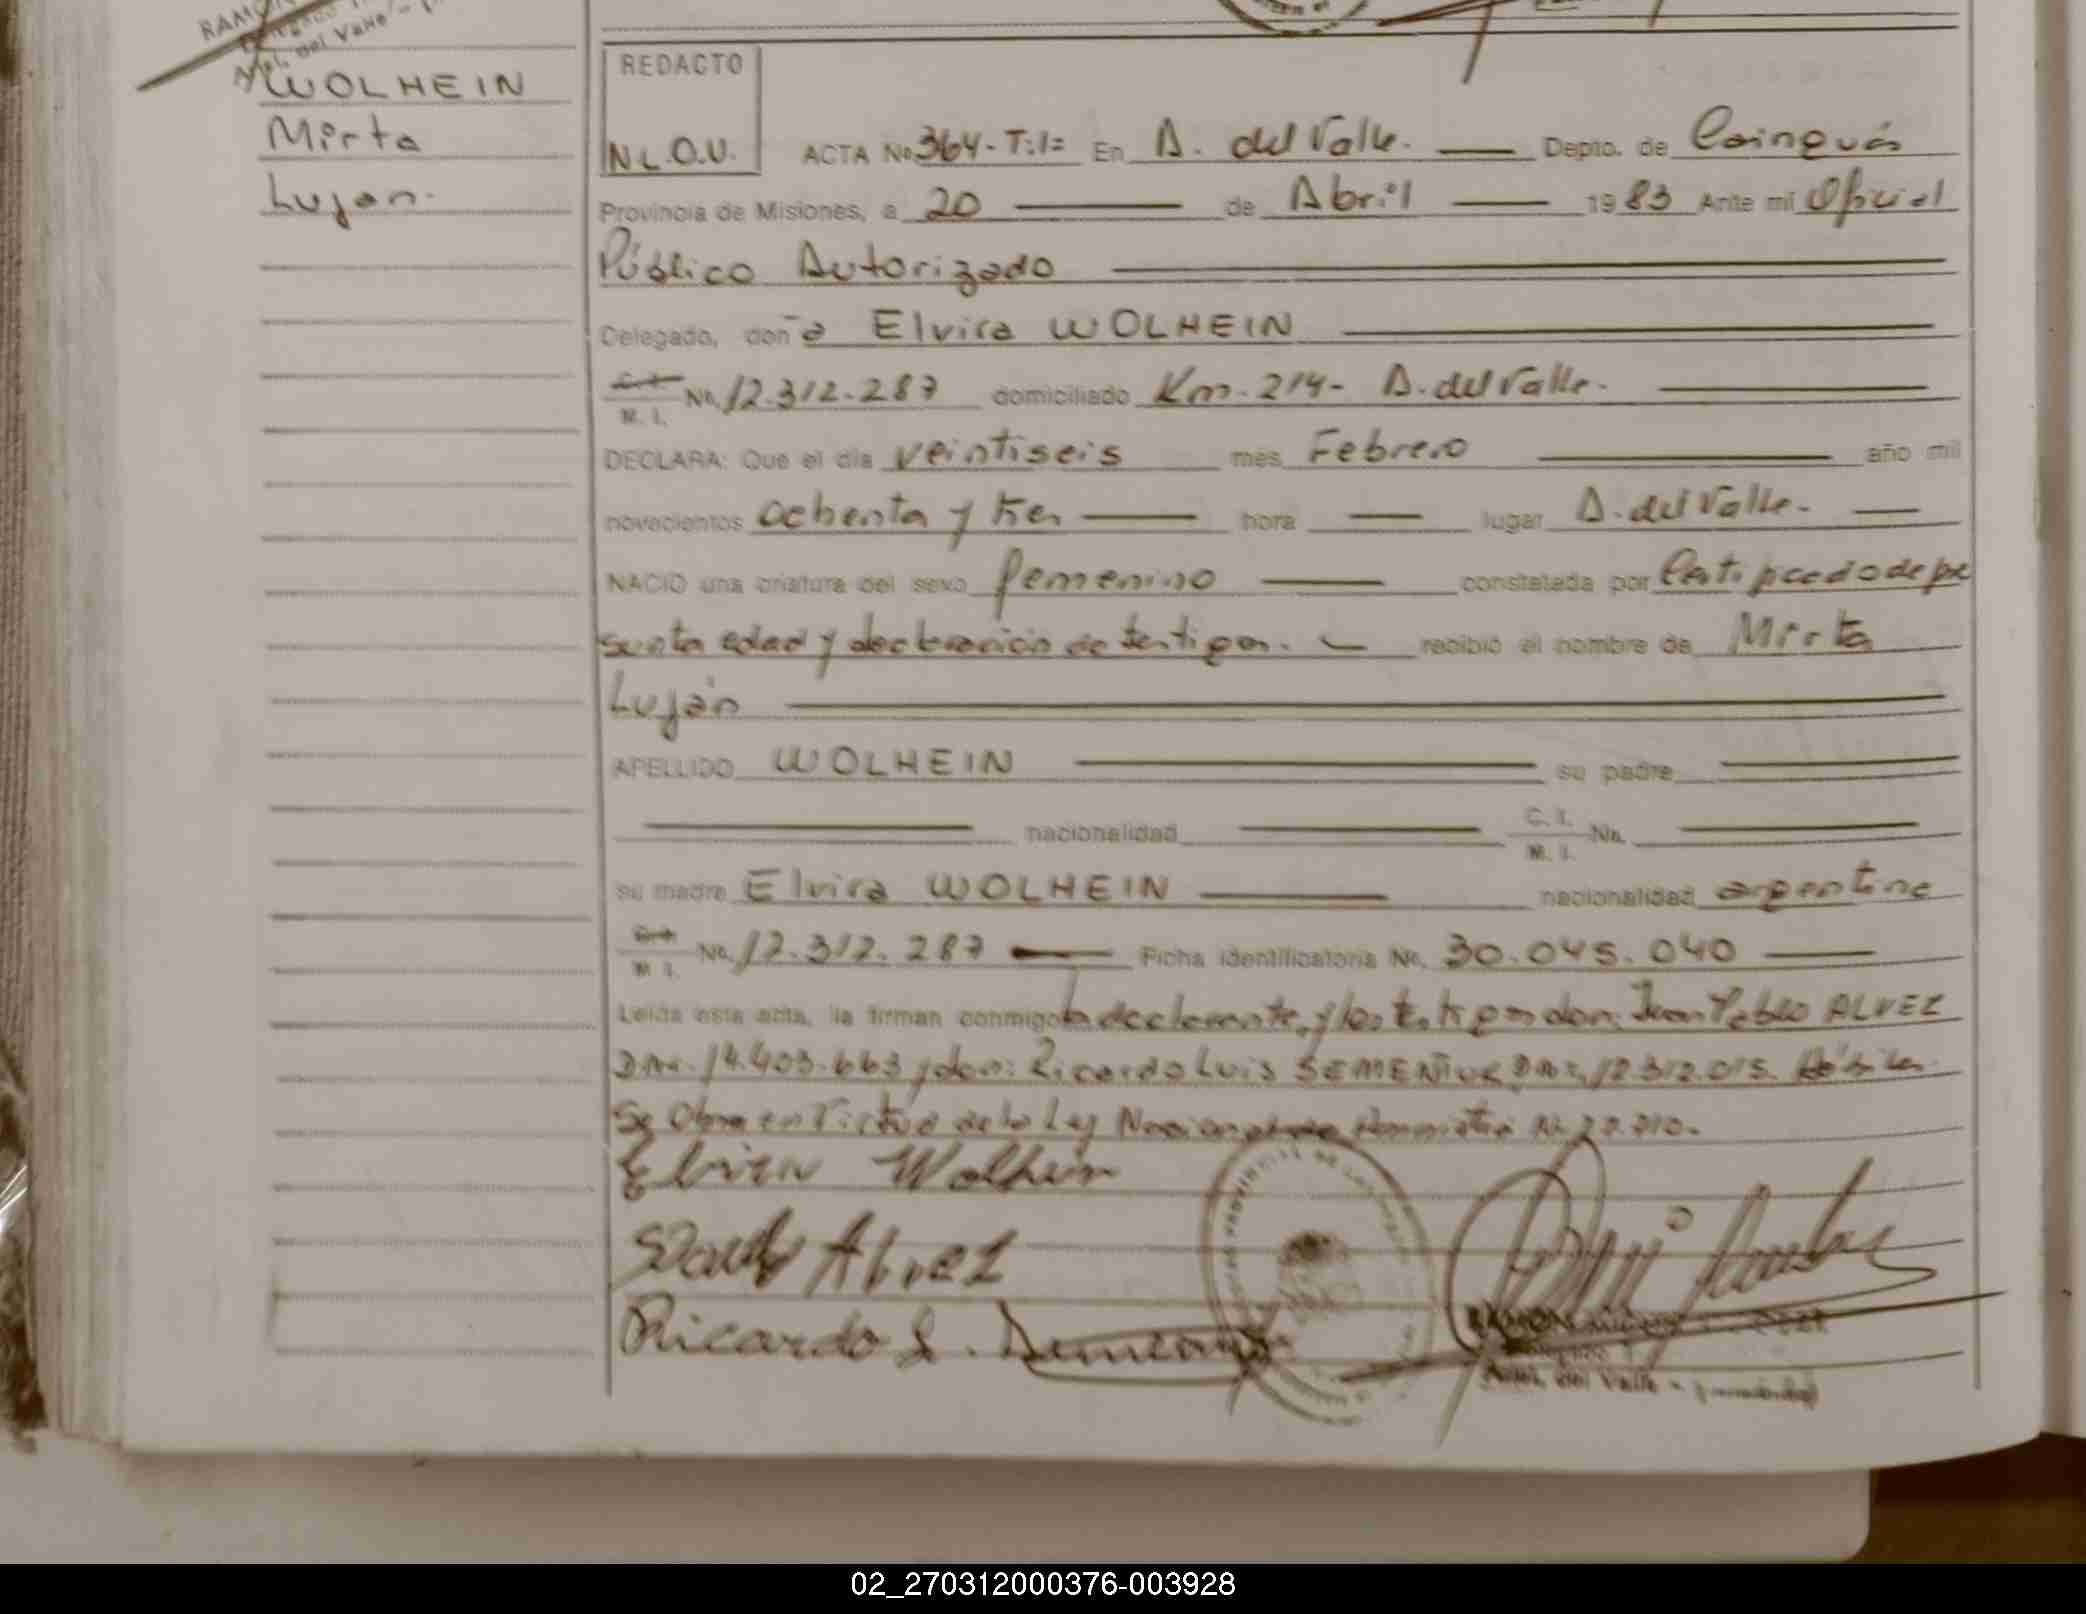 RAMON
del Valle
WOLHEIN
Mirta
Lujan.
REDACTO
N L.O.U.
ACTA No 364-T:1= En A. del Valle. Depto. de Cainguás
Provincia de Misiones, a 20 de Abril 1983 Ante mi Oficial
Público Autorizado
Delegado, doña Elvira WOLHEIN
C. I.
M. I.
No. 12.312.287 domiciliado Km. 214- A. del Valle.
DECLARA: Que el día veintiseis mes Febrero año mil
novecientos ochenta y tres hora lugar A. del Valle.
NACIO una criatura del sexo femenino constatada por Certificado de pre
sunta edad y declaración de testigos. recibió el nombre de Mirta
Luján
APELLIDO WOLHEIN su padre
nacionalidad C. I.
M. I. No.
su madre Elvira WOLHEIN nacionalidad argentina
C. I.
M. I.
No. 12.312.287 Ficha identificatoria No. 30.045.040
Leída esta acta, la firman conmigo la declarante, y los testigos don: Juan Pablo ALVEZ
DNI. 14.403.663 y don: Ricardo Luis SEMEÑIUK DNI. 12.312.015.
Se Obra en Virtud de la Ley Nacional de Amnistia N.
Elvira Wolhein
Alvez
Ricardo L.
RAMON
Aristó. del Valle - (Misiones)
02_270312000376-003928